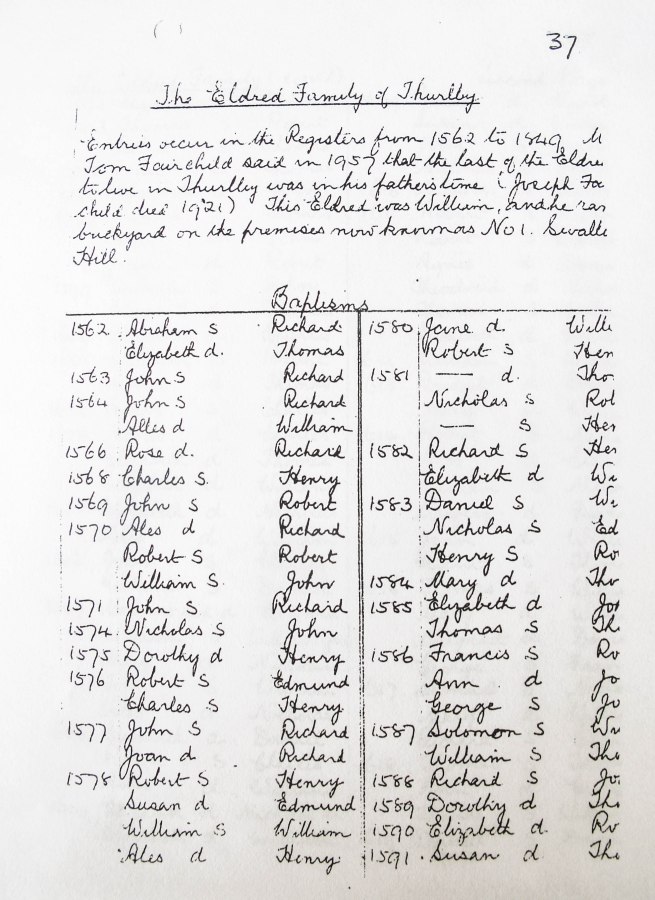 37
The Eldred Family of Thurlby.
Entries occur in the Registers from 1562 to 1849. M
Tom Fairchild said in 1957 that the last of the Eldre
to live in Thurlby was in his father's time (Joseph Fa
child died 1921) This Eldred was William, and he ran
buckyard on the premises now known as No 1.
Hill.
Baptisms
1562 Abraham s Richard
Elizabeth d. Thomas
1563 John s Richard
1564 John s Richard
Alles d William
1566 Rose d. Richard
1568 Charles s. Henry
1569 John s Robert
1570 Ales d Richard
Robert s Robert
William s. John
1571 John s Richard
1574 Nicholas s John
1575 Dorothy d Henry
1576 Robert s Edmund
Charles s Henry
1577 John s Richard
Joan d Richard
1578 Robert s Henry
Susan d Edmund
William s William
Ales d Henry
1580 Jane d. Willi
Robert s Hen
1581 — d. Tho
Nicholas s Rob
— s Hen
1582 Richard s Hen
Elizabeth d Wi
1583 Daniel s Wi
Nicholas s Ed
Henry s Ro
1584 Mary d Tho
1585 Elizabeth d Jo
Thomas s Th
1586 Francis s Ro
Ann d Jo
George s Jo
1587 Solomon s Wi
William s Tho
1588 Richard s Jo
1589 Dorothy d Tho
1590 Elizabeth d. Ro
1591 Susan d Tho